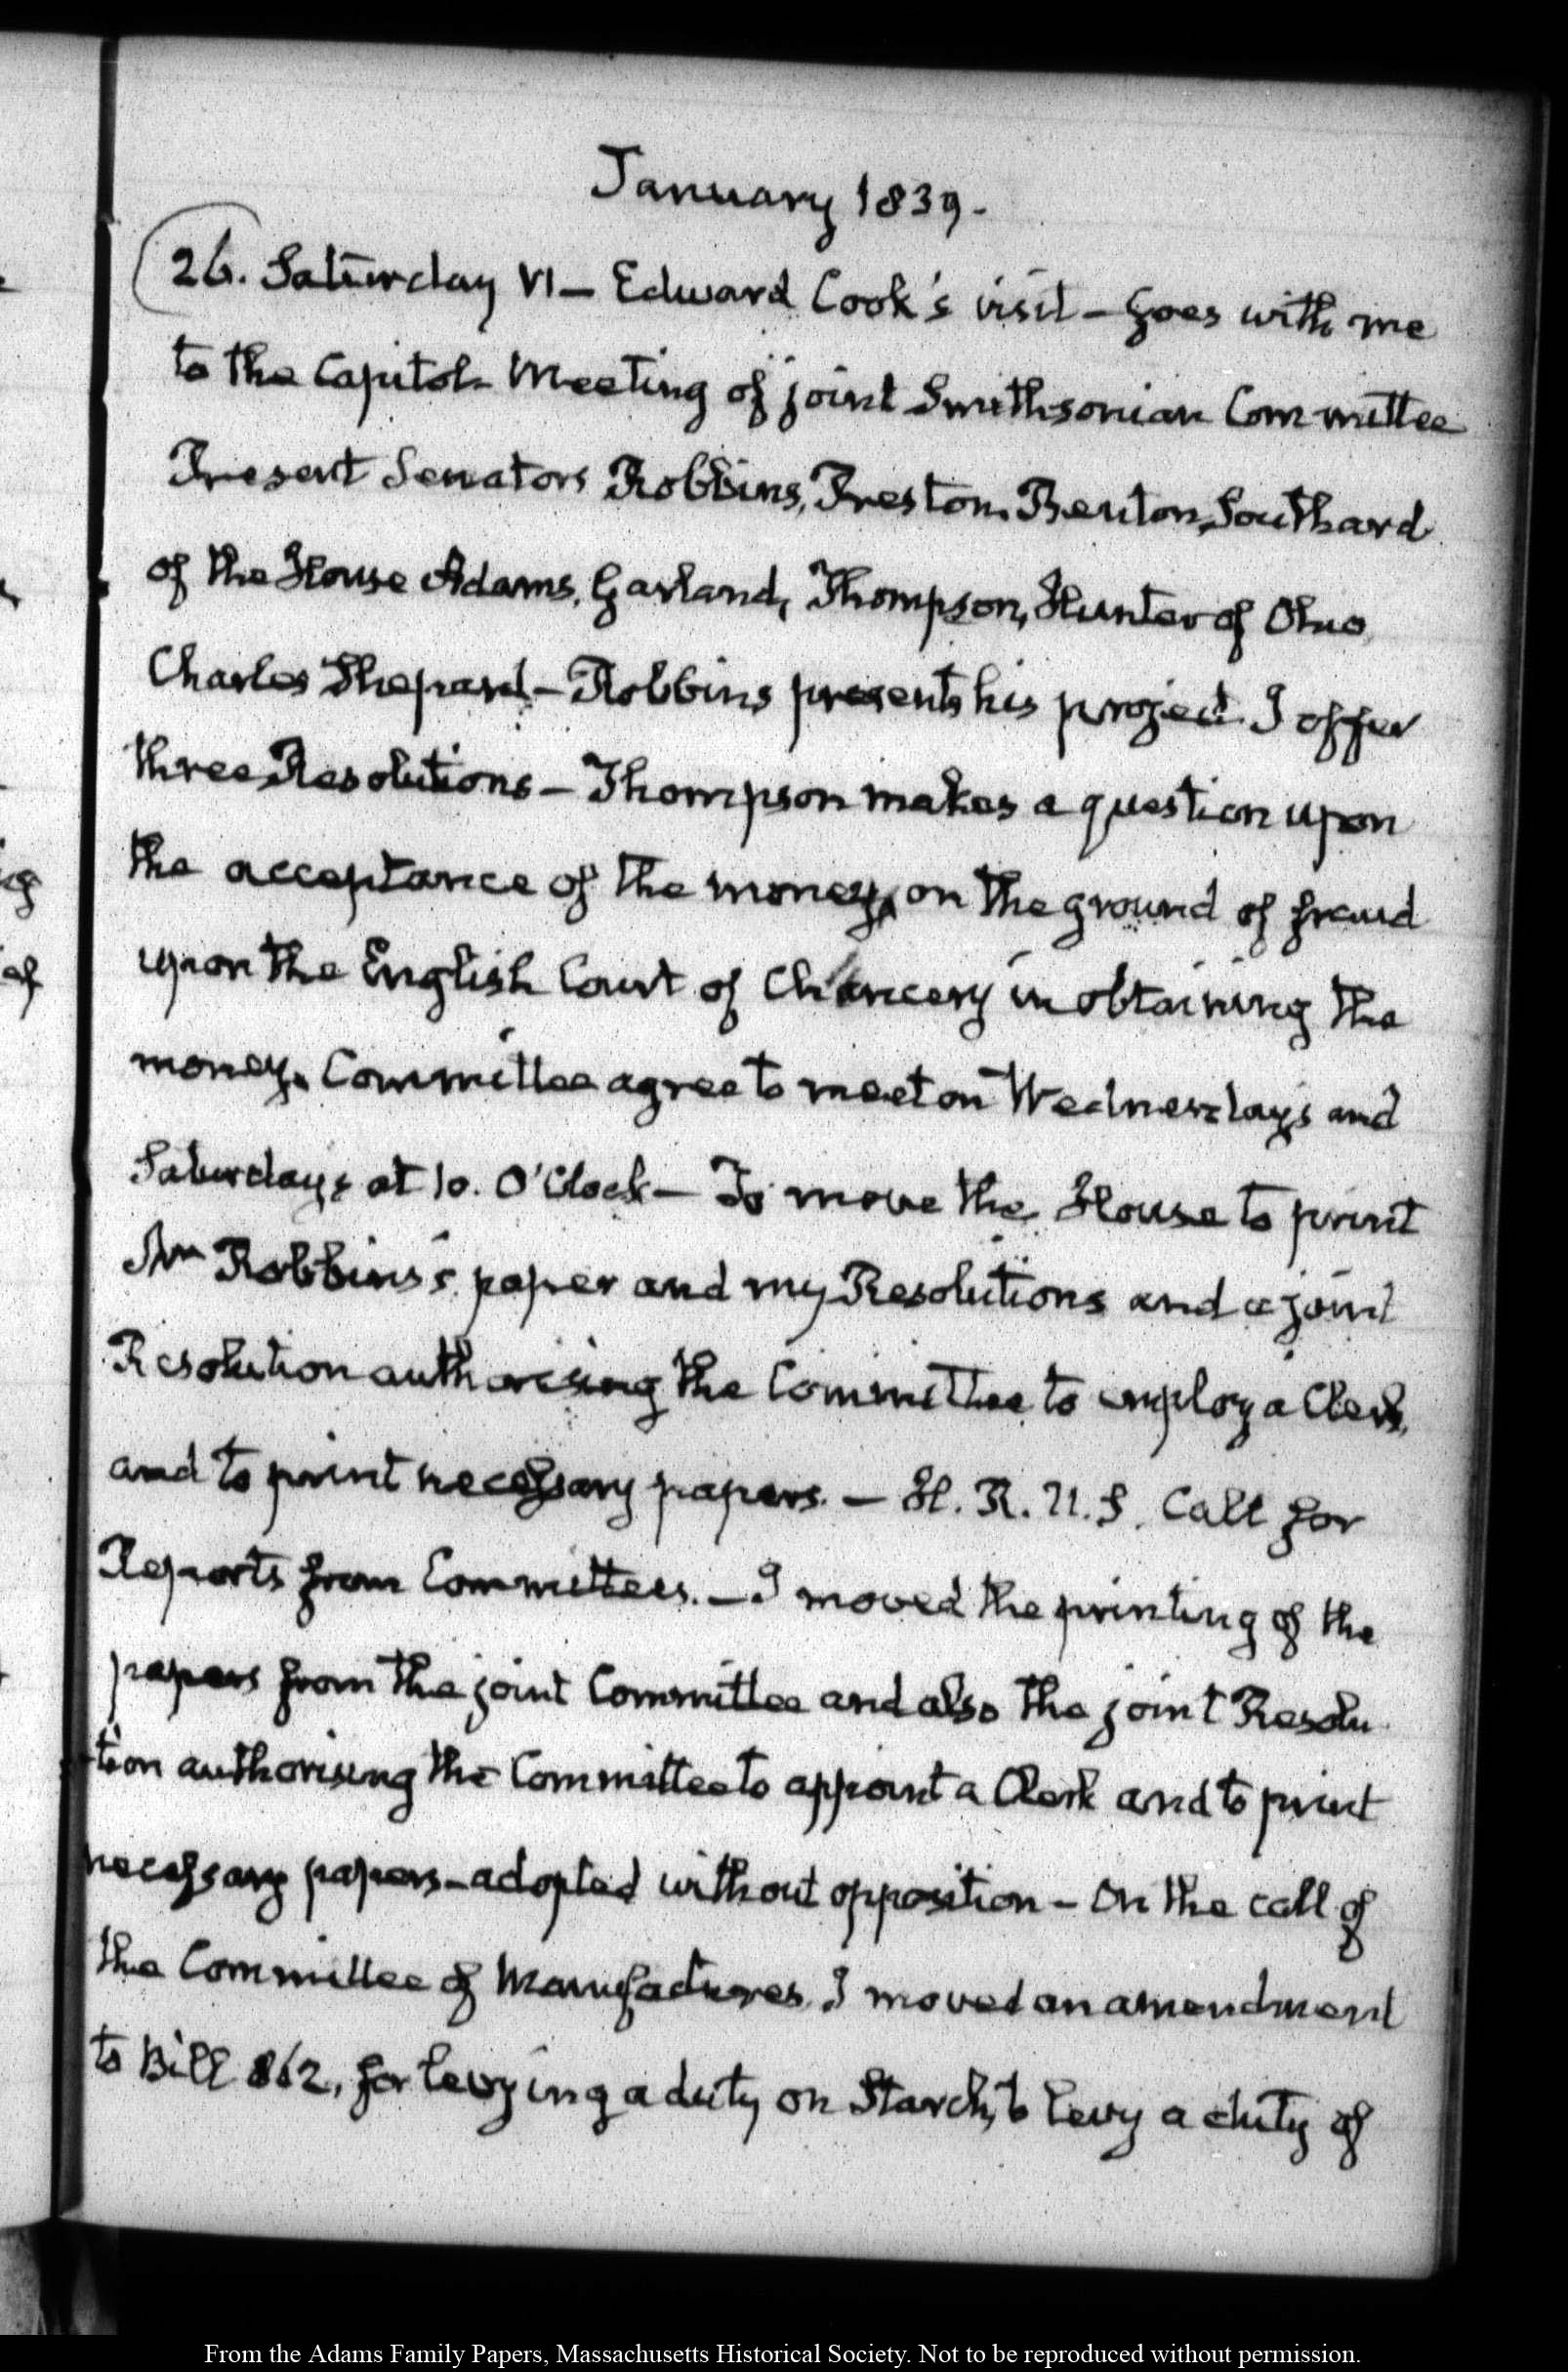 January 1839.
26. Saturday VI — Edward Cook's visit — Goes with me
to the Capitol — Meeting of joint Smithsonian Committee
Present Senators Robbins, Preston, Benton, Southard
of the House Adams, Garland, Thompson, Hunter of Ohio
Charles Shepard — Robbins presents his project. I offer
three Resolutions — Thompson makes a question upon
the acceptance of the money, on the ground of fraud
upon the English Court of Chancery in obtaining the
money. Committee agree to meet on Wednesdays and
Saturdays at 10. O'Clock — To move the House to print
Mr Robbins's paper and my Resolutions and a joint
Resolution authorising the Committee to employ a Clerk,
and to print necessary papers. — H. R. U.S. Call for
Reports from Committees. — I moved the printing of the
papers from the joint Committee and also the joint Resolu-
-tion authorising the Committee to appoint a Clerk and to print
necessary papers — adopted without opposition — On the call of
the Committee of Manufactures, I moved an amendment
to Bill 862, for levying a duty on Starch, to levy a duty of
g
of
From the Adams Family Papers, Massachusetts Historical Society. Not to be reproduced without permission.